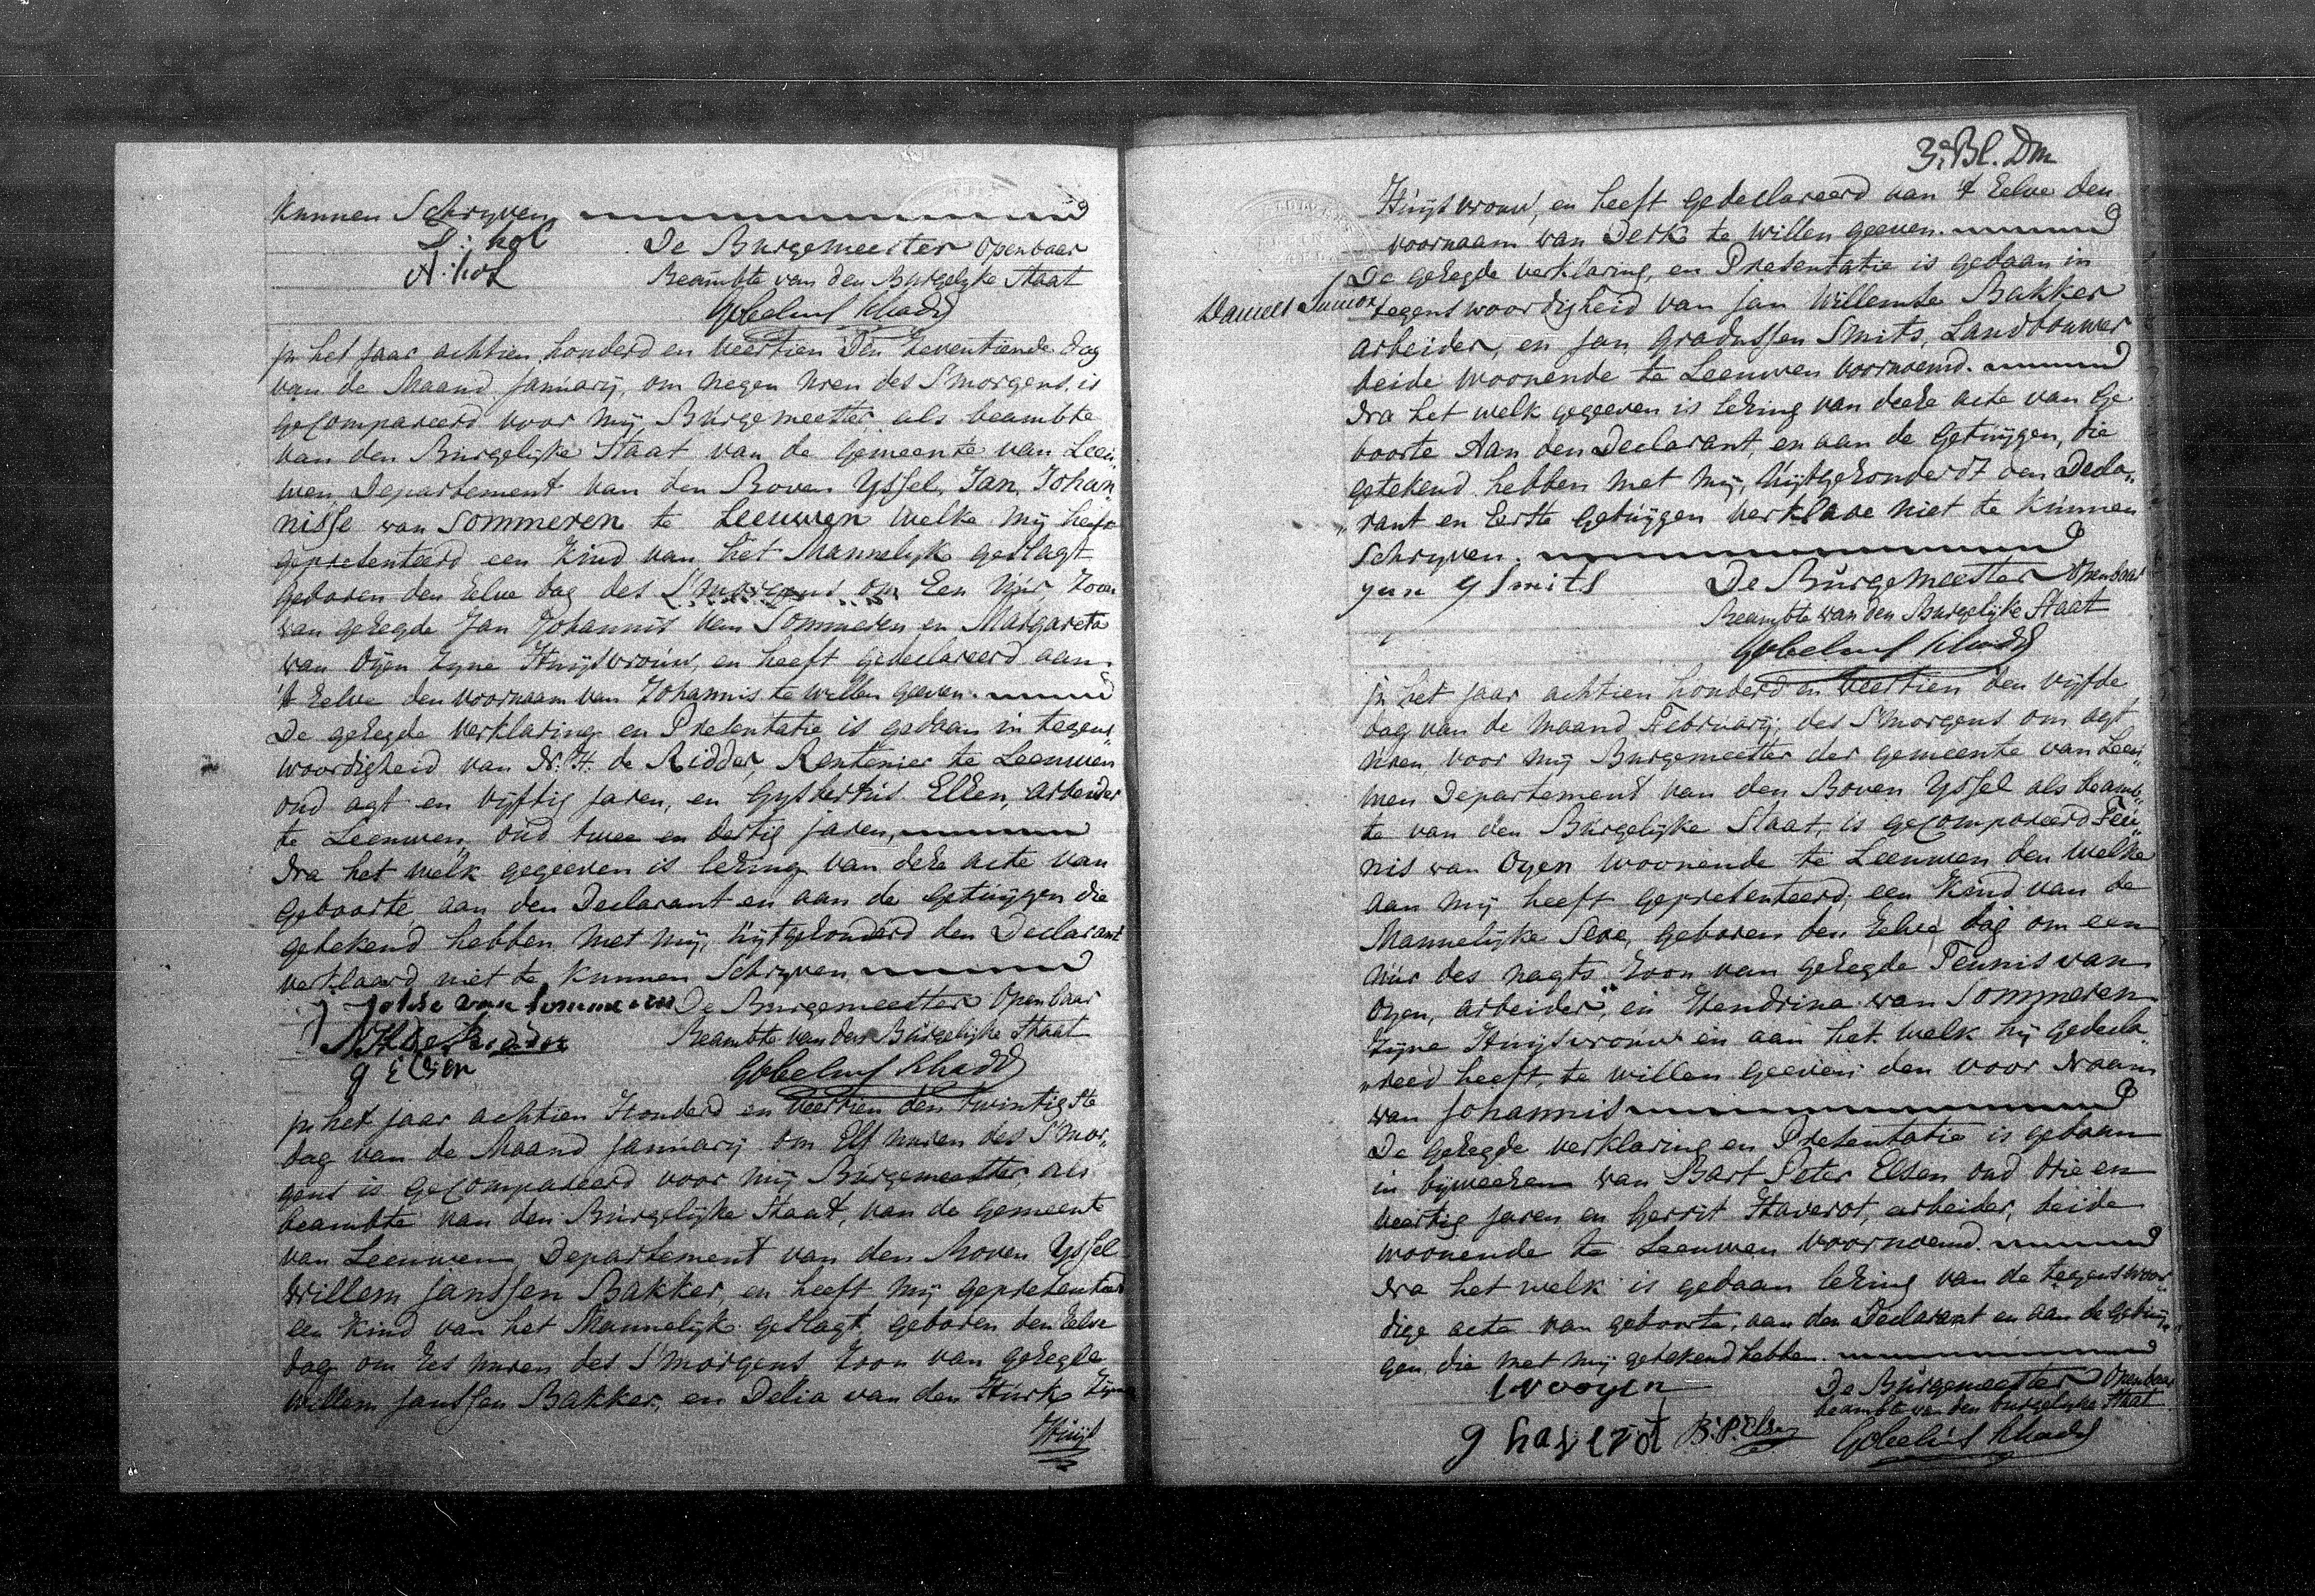 kunnen Schryven
S: hol
A: hol
De Burgemeester Openbaar
Beambte van den Burgelyke Staat
Jn het jaar achtien honderd en veertien Den Zeventiende Dag
van de Maand January, om negen uren des Smorgens is
geCompareerd voor mij, Burgemeester als beambte
van den Burgelijke Staat van de Gemeente van Leeu„
wen Departement van den Boven Yssel, Jan, Johan„
nisse van Sommeren te Leeuwen welke mij heeft
gepresenteerd een Kind van het Mannelyk geslagt
geboren den Zelve dag des Smorgens om Een Uur Zoon
van gezegde Jan Johannis van Sommeren en Margareta
van Oijen Zyne Huijsvrouw, en heeft gedeclareerd aan
't Zelve den voornaam van Johannis te willen geeven.
De gezegde verklaring en Presentatie is gedaan in tegens„
woordigheid van N. H. de Ridder, Rentenier te Leeuwen
oud agt en vijftig jaren, en Gysbertus Elsen, arbeider
te Leeuwen, oud twee en dertig jaren,
Na het welk gegeeven is lezing van deze acte van
Geboorte aan den Declarant en aan de Getuijgen die
getekend hebben met mij, uijtgezonderd den Declarant
verklaard niet te kunnen Schryven
Johse van Sommeren De Burgemeester Openbaar
NH de Ridder Beambte van den Burgelijke Staat
g Elsen
Jn het jaar achtien Honderd en veertien den twintigste
dag van de Maand January om Elf uuren des Smor„
gens is geCompareerd voor mij Burgemeester, als
beambte van den Burgelijke Staat, van de Gemeente
van Leeuwen Departement van den Boven Yssel
Willem Janssen Bakker, en heeft mij gepresenteerd
een Kind van het Mannelijk geslagt geboren den Zelve
dag om Zes uuren des Smorgens Zoon van gezegde
Willem Janssen Bakker, en Delia van den Hurk Zijne
Huijs
3e Bl. Dm
Huijsvrouw, en heeft gedeclareerd aan 't Zelve den
voornaam van Derk te willen geeven.
De gezegde verklaring, en Presentatie is gedaan in
tegenswoordigheid van Jan Willemse Bakker
arbeider, en Jan Gradussen Smits, Landbouwer
beide woonende te Leeuwen voornoemd.
Na het welk gegeeven is lezing van deeze acte van Ge
boorte Aan den Declarant, en aan de Getuijgen, die
getekend hebben met mij, uijtgezonderdt den Decla„
„rant en Eerste Getuijgen verklare niet te kunnen
Schryven.
yan g Smits De Burgemeester Openbaar
Beambte van den Burgelijke Staat
Jn het jaar achtien honderd en veertien den vijfde
dag van de Maand February, des Smorgens om agt
uren, voor mij Burgemeester der gemeente van Leeu„
wen Departement van den Boven Yssel als beamb„
te van den Burgelijke Staat, is geCompareerd Teu„
nis van Oyen woonende te Leeuwen den welke
aan mij heeft gepresenteerd, een Kind van de
Mannelijke Sexe, geboren den Zelve dag om een
uur des nagts Zoon van gezegde Teunis van
Oyen, arbeider, en Hendrina van Sommeren
Zijne Huijsvrouw en aan het welk hij gedecla„
„reed heeft, te willen geeven den voor Naam
van Johannis
De gezegde verklaring en Presentatie is gedaan
in bijweezen van Bart Peter Elsen oud drie en
veertig jaren en Gerrit Haverot, arbeider, beide
woonende te Leeuwen voornoemd.
Na het welk is gedaan lezing van de tegenswoor„
dige acte van geboorte, aan den Declarant en aan de getuij„
gen, die met mij getekend hebben.
De Burgemeester Openbaar
beambte van den burgelijke Staat
g haverot B:P:Elsen